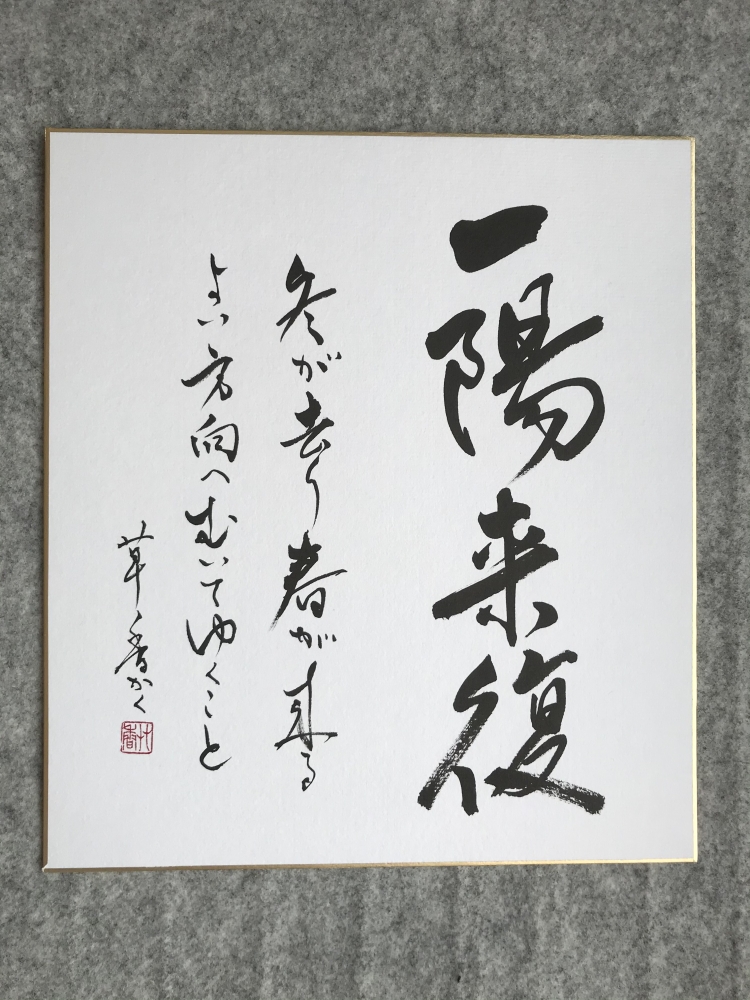 一陽来復
冬が去り春が来る
よい方向へむいてゆくこと
草香かく